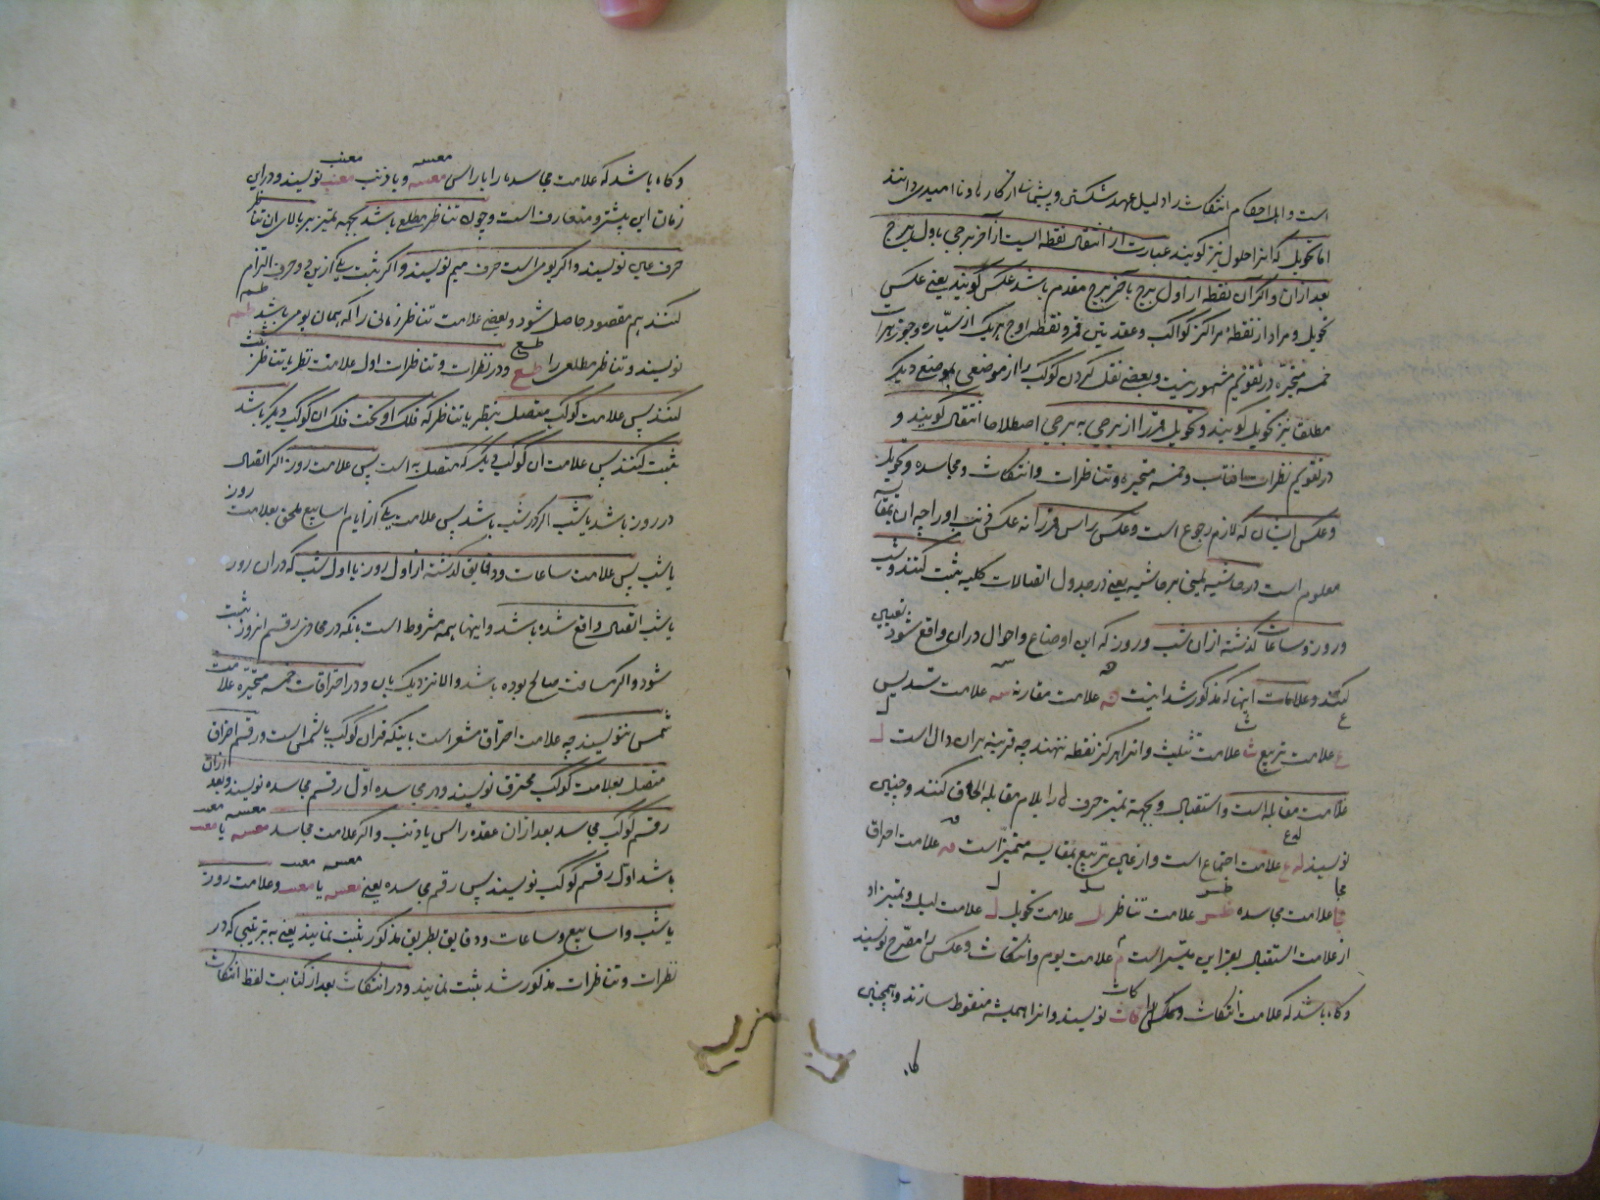 است و اهل احکام انتکاث را دلیل عهد شکستن و پشیمانی از کارها و ناامیدی دانند
اما تحویل که انرا حلول نیز کویند عبارت از انتقال نقطه ایست از آخر برجی باول برج
بعد ازان و اکر آن نقطه از اول برج بآخر برج مقدم باشد عکس کویند یعنی عکس
تحویل و مراد از نقطه مراکز کواکب و عقدتین قمر و نقطه اوج هریک از سیّاره و جوزهرات
خمسه متحیّره در تقویم مشهور نیست و بعضی نقل کردن کوکب را از موضعی بموضعی دیکر
مطلقا نیز تحویل کویند و تحویل قمر را از برجی به برجی اصطلاحا انتقال کویند و
در تقویم نظرات و خمسه متحیره و تناظرات و انتکاثات و مجاسده و تحویل
و عکس ایشان که لازم رجوع است و عکس راس قمر را نه عکس ذنب او را چه ان بمقابله
معلوم است در حاشیه یمنی بر حاشیه یعنی در جدول اتصالات کلیه ثبت کنند و شب
و روز و ساعات کذشته ازان شب و روز که این اوضاع و احوال دران واقع شود تعیین
کنند و علامات اینها که مذکور شد اینست نه علامت مقارنه سه علامت تسدیس
ع علامت تربیع ث علامت تثلیث و انرا هرکز نقطه ننهند چه قرینه بران دال است ل
علامت مقابله است و استقبال و بجهة تمیز حرف را بلام مقابله الحاق کنند و چنین
نویسند علامت اجتماع است و از عین تربیع بمقایسه متمیز است قه علامت احراق
مجا علامت مجاسده علامت تناظر یل علامت تحویل ل علامت لیل و تمیز او
از علامت استقبال بقراین میسّر است م علامت یوم و انتکاث و عکس را مصرح نویسند
و کاه باشد که علامت انتکاث کاث نویسند و انرا همیشه منقوط سازند و همچنین
کاه
و کاه باشد که علامت مجاسده را با راس معسه و با ذنب معنب نویسند و در این
زمان این بیشتر و متعارف است و چون تناظر مطلعی باشد بجهة تمیز بر بالای ان تناظر
حرف عین نویسند و اکر یومی است حرف میم نویسند و اکر ثبت یکی ازین دو حرف التزام
کنند هم مقصود حاصل شود و بعضی علامت تناظر زمانی را که همان یومی باشد طم
نویسند و تناظر مطلعی را طع و در نظرات و تناظرات اول علامت نظر یا تناظر ثبت
کنند پس علامت کوکب متصل بنظر یا تناظر که فلک او تحت فلک ان کوکب دیکر باشد
ثبت کنند پس علامت ان کوکب دیکر که متصل به است پس علامت روز اکر اتصال
در روز باشد یا شب اکر در شب باشد پس علامت یکی از ایام اسابیع ملحق بعلامت روز
یا شب پس علامت ساعات و دقایق کذشته از اول روز یا اول شب که دران روز
یا شب اتصال واقع شده باشد و اینها همه مشروط است بانکه در محاذی رقم انروز ثبت
شود و اکر مسافت صالح بوده باشد و الا نزدیک بان و در احتراقات خمسه متحیّره علامت
شمس ننویسند چه علامت احتراق مشعر است باینکه قران کوکب با شمس است و رقم احراق
متصل بعلامت کوکب محترق نویسند و در مجاسده اوّل رقم مجاسده نویسند و بعد ازان
رقم کوکب مجاسد بعد ازان عقده راس یا ذنب و اکر علامت مجاسد معسه یا معنب
باشد اول رقم کوکب نویسند پس رقم مجاسده یعنی معسه یا معنب و علامت روز
یا شب و اسابیع و ساعات و دقایق بطریق مذکور ثبت نمایند یعنی به ترتیبی که در
نظرات و تناظرات مذکور شد ثبت نمایند و در انتکاث بعد از کتابت لفظ انتکاث